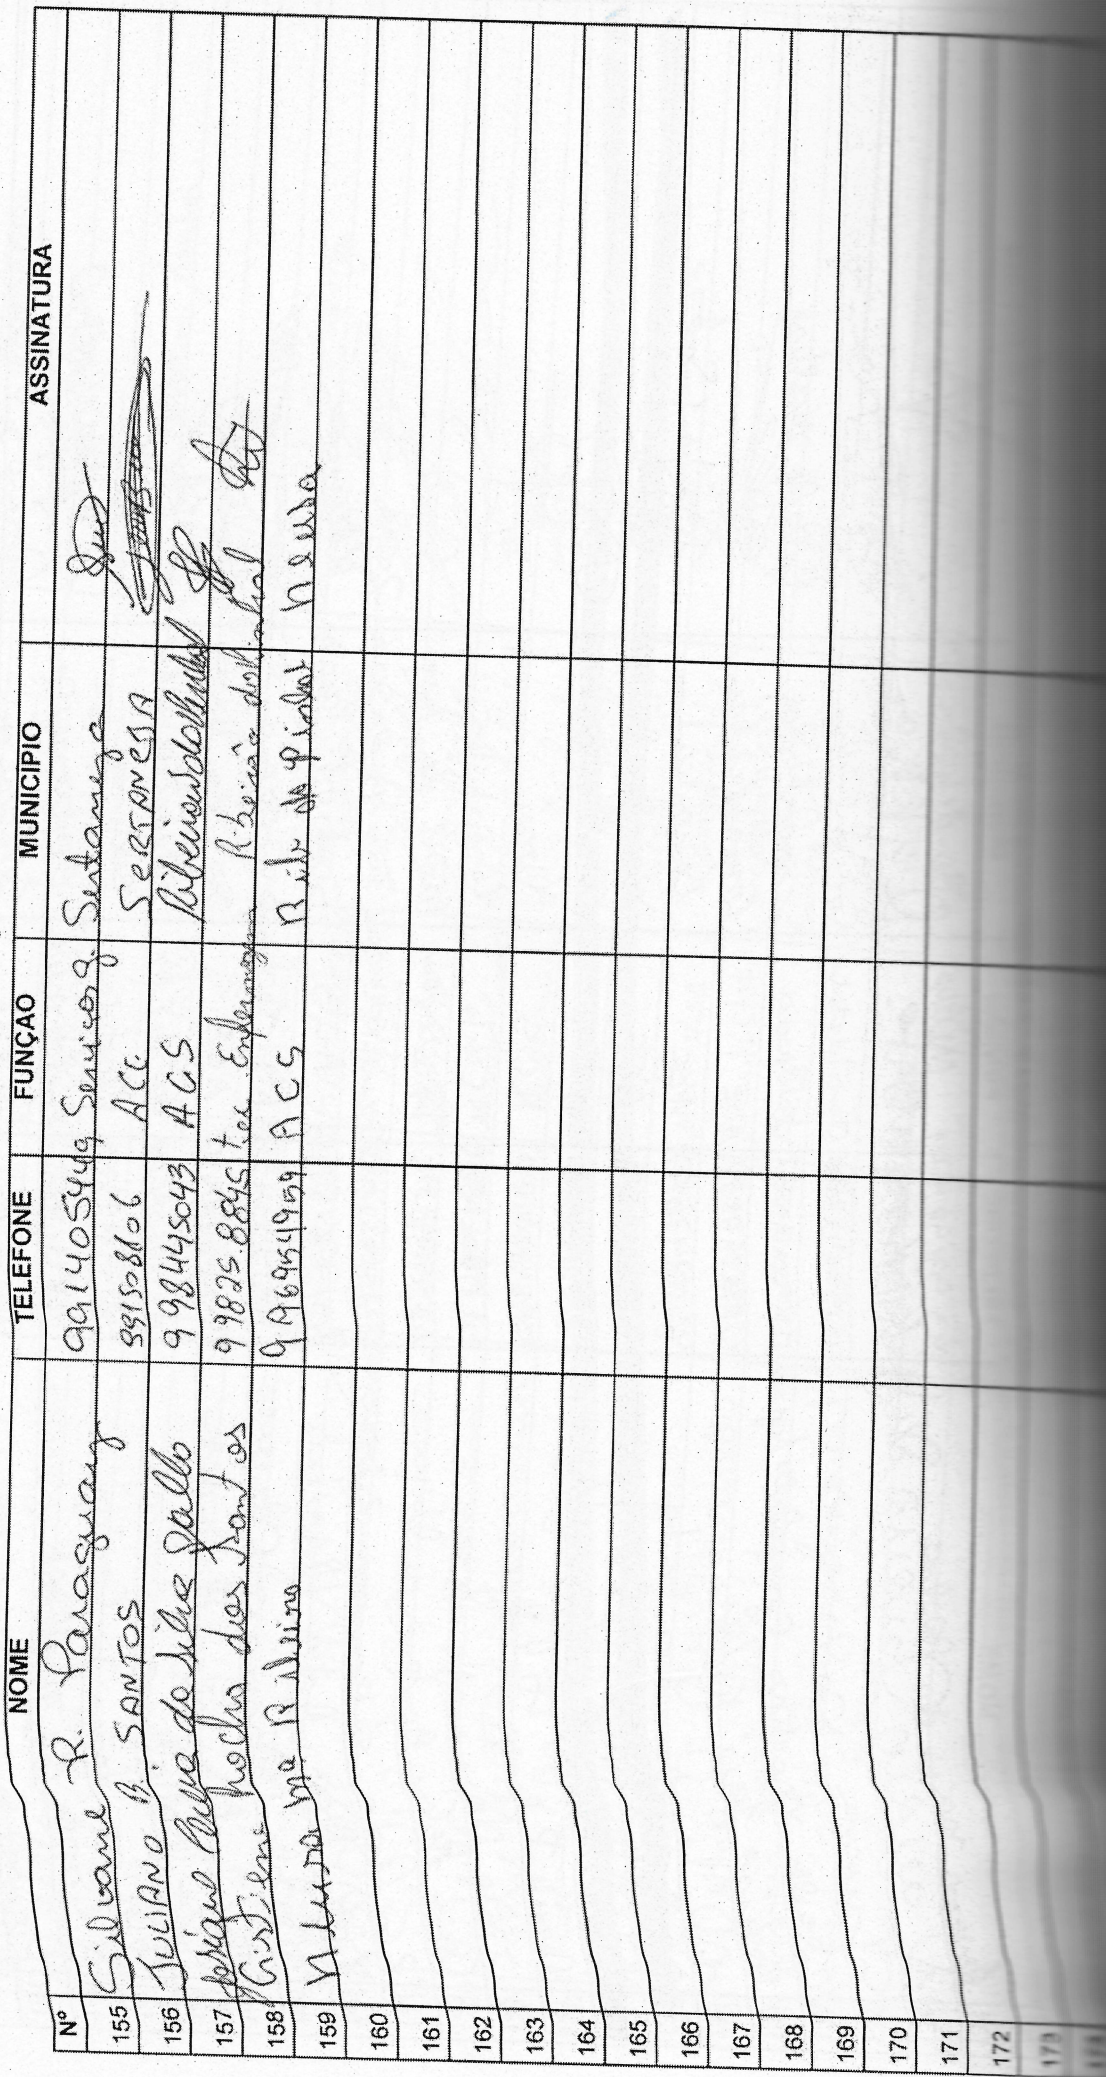 Nº NOME TELEFONE FUNÇAO MUNICIPIO ASSINATURA
155 Silvane R. Paraguay 991405449 Serviços g. Sertaneja
156 JULIANO B. SANTOS 991508106 ACE SERTANEJA
157 da Silva 998445043 ACS Ribeirão do Pinhal
158 Cristiene Rocha dos Santos 99825.8845 tec. Enfermagem Ribeirão do Pinhal
159 Neusa Mª Ribeiro 996954959 ACS Rib do Pinhal Neusa
160
161
162
163
164
165
166
167
168
169
170
171
172
173